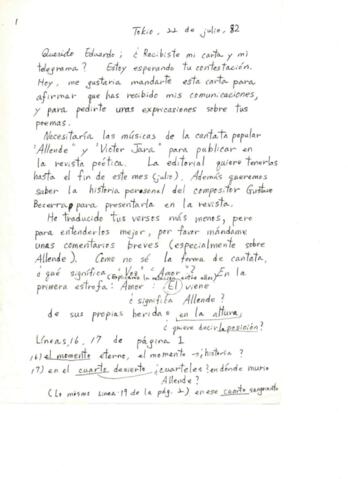 1
Tokio, 22 de julio, 82
Querido Eduardo; ¿Recibiste mi carta y mi
telegrama? Estoy esperando tu contestación.
Hoy, me gustaría mandarte esta carta para
afirmar que has recibido mis comunicaciones,
y para pedirte unas expricasiones sobre tus
poemas.
Necesitaría las músicas de la cantata popular
"Allende" y "Victor Jara" para publicar en
la revista poética. La editorial quiere tenerlas
hasta el fin de este mes (julio). Además queremos
saber la historia personal del compositor Gustavo
Becerra, para presentarla en la revista.
He traducido tus versos más menos, pero
para entenderlos mejor, por favor mándame
unas comentarios breves (especialmente sobre
Allende). Como no sé la forma de cantata,
¿qué significa "Voz" "Amor"? En la
(Explícame la relación entre ellos)
primera estrofa: Amor: (El) viene
¿significa Allende?
de sus propias heridas en la altura,
¿quiere decir la posición?
Líneas, 16, 17 de página 1
16) el momento eterno, el momento → ¿historia?
17) en el cuarto desierto ¿cuarteles? en dónde murió
Allende?
(Lo mismo línea 19 de la pág. 2) en ese cuarto sangriento